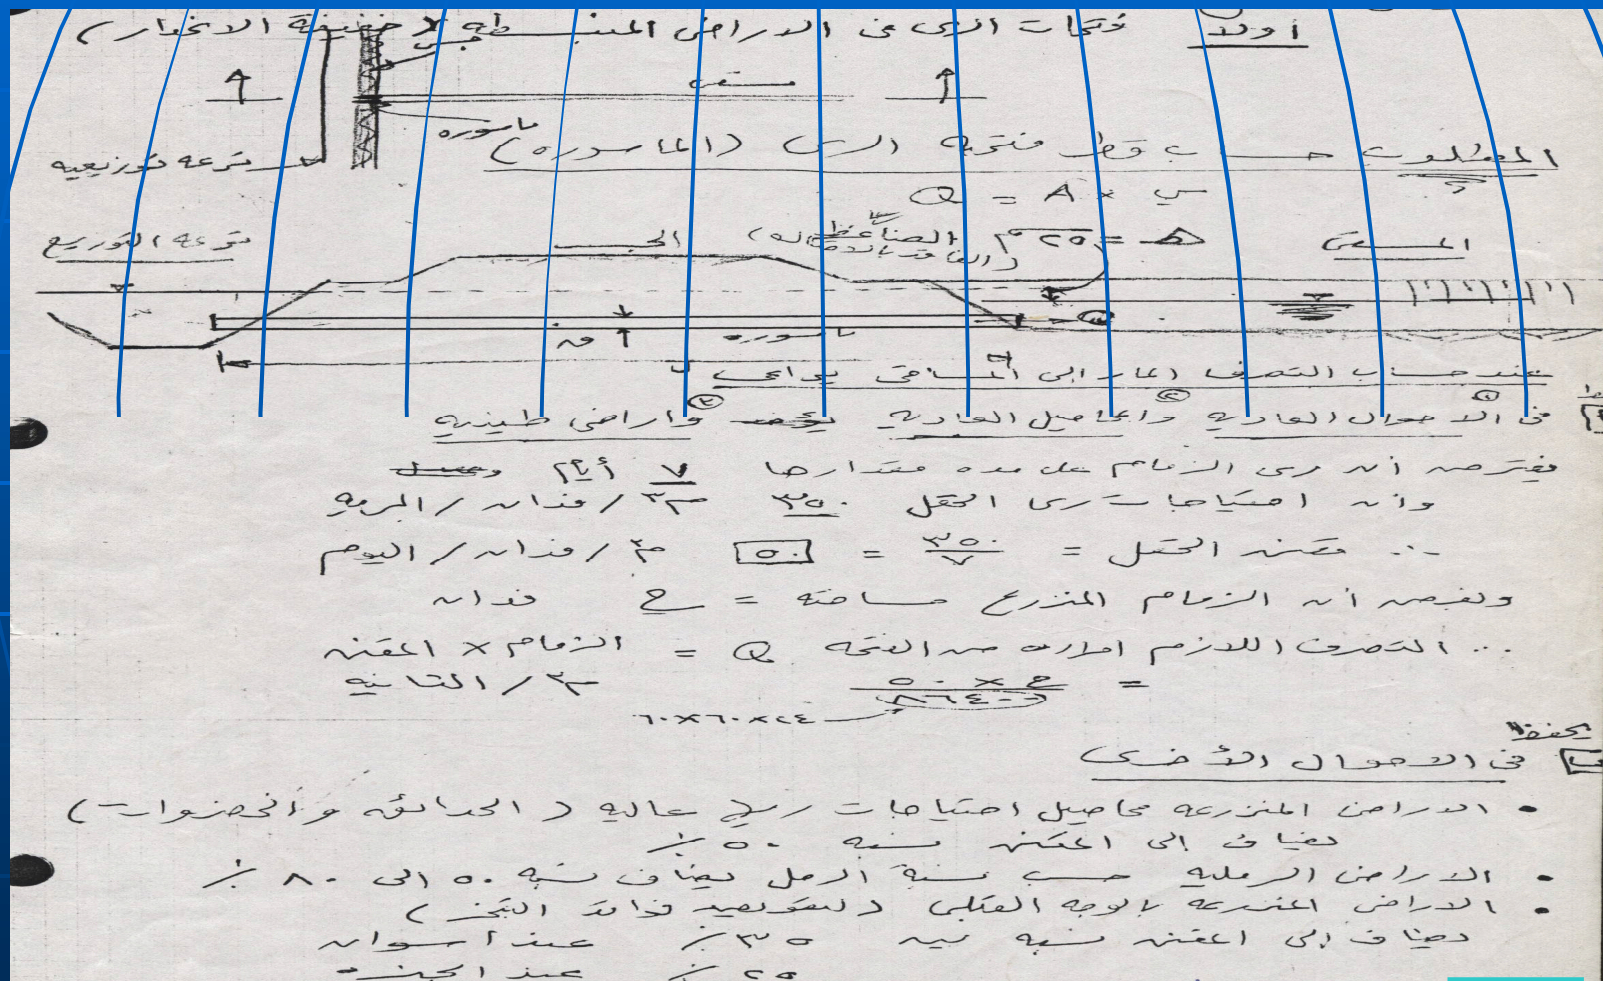 أولا فتحات الرى فى الاراضى المنبسطه (خفيفة الانحدار)
جسر
مسقى
ماسوره
ترعه توزيعيه
المطلوب حساب قطر فتحة الرى (الماسوره)
Q = A × س
المسقى
الجسر
ترعه التوزيع
ھ = ٢٥ سم
ماسوره
ق
ل
عند حساب التصرف المار الى المساقى يراعى
فى الاحوال العاديه والمحاصيل العاديه واراضى طينيه
يفترض أن رى الزمام على مده مقدارها ٧ أيام
وان احتياجات رى الحقل ٣٥٠ م٣ / فدان / الريه
∴ مقنن الحقل = ٣٥٠/٧ = ٥٠ م٣ / فدان / اليوم
وبفرض ان الزمام المنزرع مساحته = ح فدان
∴ التصرف اللازم امراره من الفتحه Q = الزمام × المقنن
= ح × ٥٠ / ٨٦٤٠٠ م٣ / الثانيه
٦٠×٦٠×٢٤
يحفظ
ب فى الاحوال الأخرى
• الاراضى المنزرعه محاصيل احتياجات ريها عاليه (الحدائق والخضروات)
يضاف الى المقنن نسبه ٥٠ ٪
• الاراضى الرمليه حسب نسبة الرمل يضاف نسبه ٥٠ الى ٨٠ ٪
• الاراضى المنزرعه بالوجه القبلى (لتعويض فواقد البخر)
يضاف الى المقنن نسبه بين ٣٥ ٪ عند اسوان
٢٥ ٪ عند الجيزه